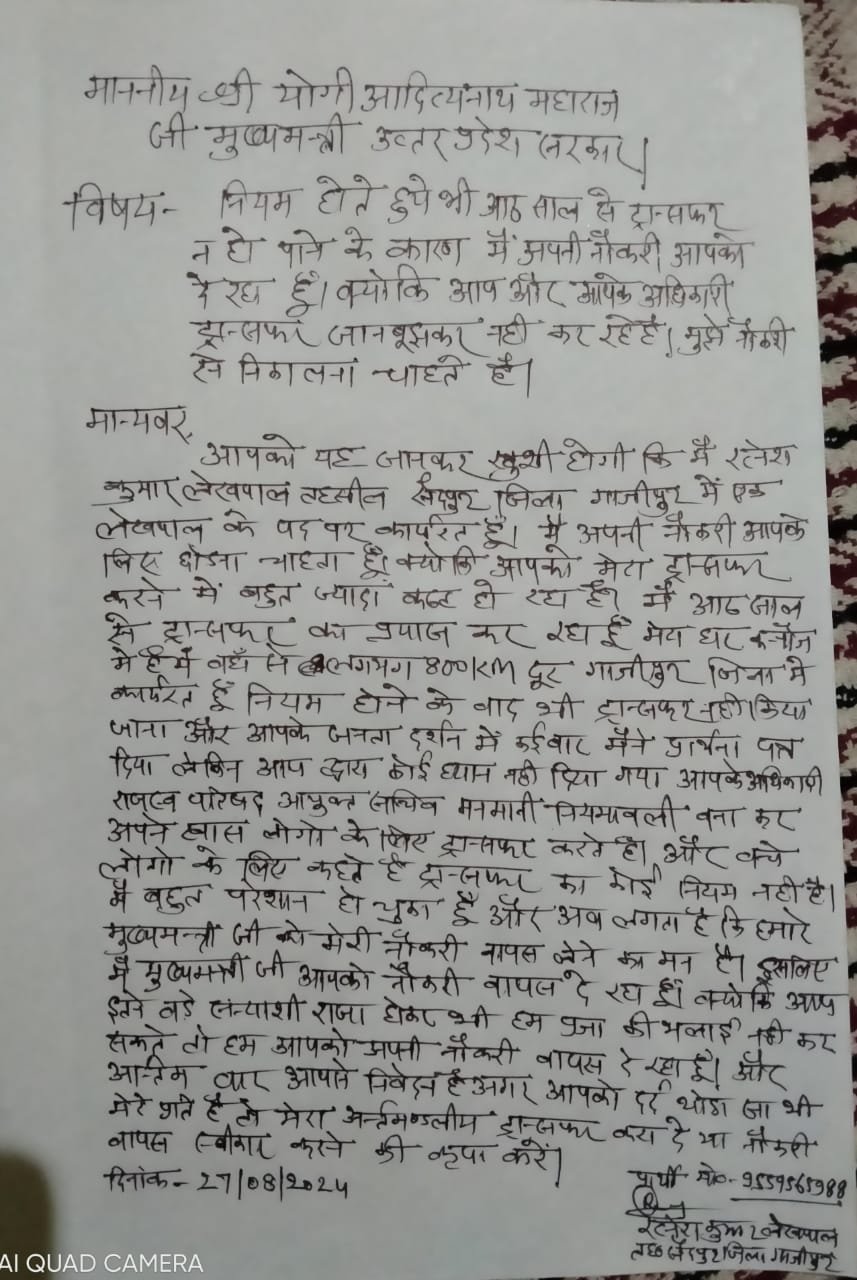 माननीय श्री योगी आदित्यनाथ महाराज
जी मुख्यमन्त्री उत्तर प्रदेश सरकार।
विषय- नियम होते हुये भी आठ साल से ट्रान्सफर
न हो पाने के कारण में अपनी नौकरी आपको
दे रहा हूँ। क्योकि आप और आपके अधिकारी
ट्रान्सफर जानबूझकर नही कर रहे है। मुझे नौकरी
से निकालना चाहते है।
मान्यवर,
आपको यह जानकर खुशी होगी कि मै रत्नेश
कुमार लेखपाल तहसील सैदपुर जिला गाजीपुर में एक
लेखपाल के पद पर कार्यरत हूँ। मै अपनी नौकरी आपके
लिए छोडना चाहता हूँ। क्योकि आपको मेरा ट्रान्सफर
करने में बहुत ज्यादा कष्ट हो रहा है। मै आठ साल
से ट्रान्सफर का प्रयास कर रहा हूँ मेरा घर कन्नौज
मे है मै वहाँ से लगभग 800 KM दूर गाजीपुर जिला मे
कार्यरत हूँ नियम होने के बाद भी ट्रान्सफर नही किया
जाना और आपके जनता दर्शन में कई बार मैने प्रार्थना पत्र
दिया लेकिन आप द्वारा कोई ध्यान नही दिया गया आपके अधिकारी
राजस्व परिषद आयुक्त सचिव मनमानी नियमावली बना कर
अपने खास लोगो के लिए ट्रान्सफर करते है। और बचे
लोगो के लिए कहते है ट्रान्सफर का कोई नियम नही है।
मै बहुत परेशान हो चुका हूँ और अब लगता है कि हमारे
मुख्यमन्त्री जी को मेरी नौकरी वापस लेने का मन है। इसलिए
मै मुख्यमन्त्री जी आपको नौकरी वापस दे रहा हूँ। क्योकि आप
इतने बडे सन्याशी राजा होकर भी हम प्रजा की भलाई नही कर
सकते तो हम आपको अपनी नौकरी वापस दे रहा हूँ। और
अन्तिम बार आपसे निवेदन है अगर आपको दर्द थोडा सा भी
मेरे प्रति है तो मेरा अर्न्तमण्डलीय ट्रान्सफर करा दे या नौकरी
वापस स्वीकार करने की कृपा करें।
दिनांक- 27/08/2024
प्रार्थी मो०- 9559565988
रत्नेश कुमार लेखपाल
तह० सैदपुर जिला गाजीपुर
AI QUAD CAMERA